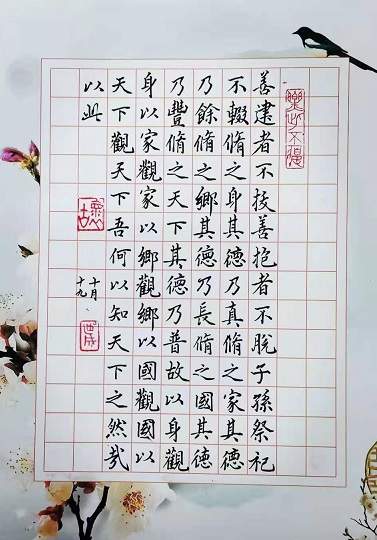 樂此不疲
善建者不拔善抱者不脱子孫祭祀
不輟脩之身其德乃真脩之家其德
乃餘脩之鄉其德乃長脩之國其德
乃豐脩之天下其德乃普故以身觀
身以家觀家以鄉觀鄉以國觀國以
天下觀天下吾何以知天下之然哉
以此
十月
十九